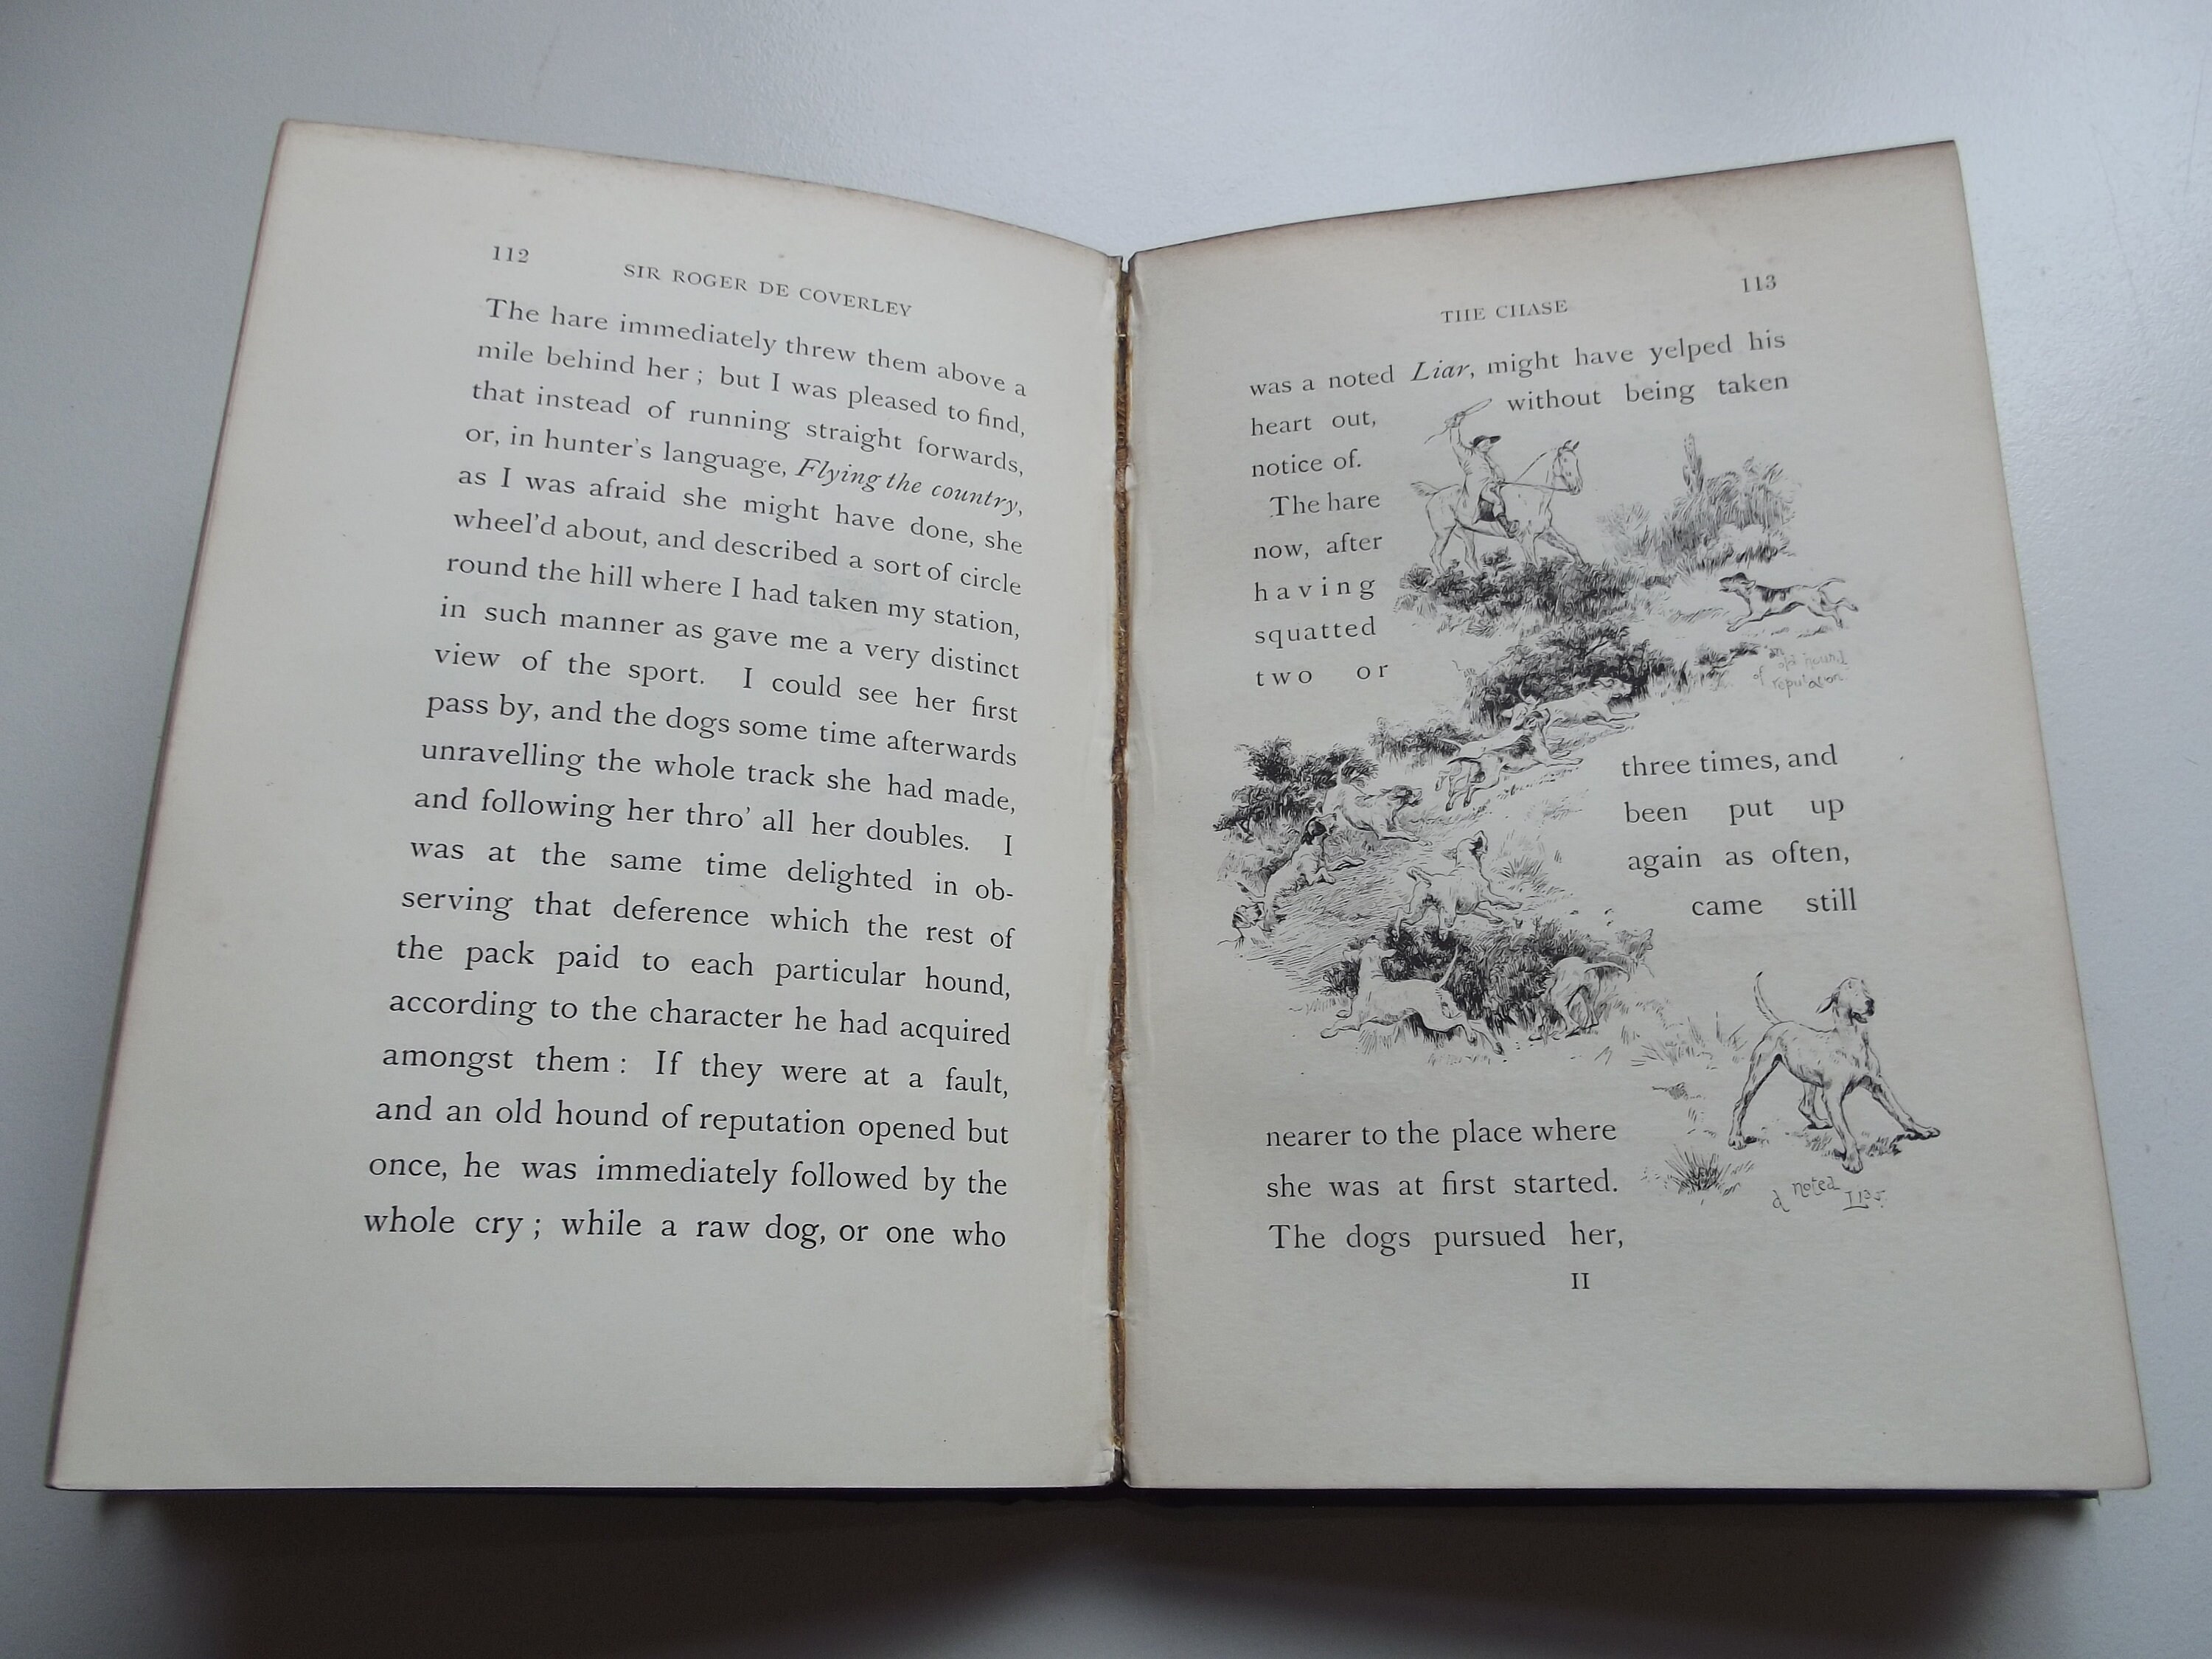 112
SIR ROGER DE COVERLEY
The hare immediately threw them above a
mile behind her ; but I was pleased to find,
that instead of running straight forwards,
or, in hunter's language, Flying the country,
as I was afraid she might have done, she
wheel'd about, and described a sort of circle
round the hill where I had taken my station,
in such manner as gave me a very distinct
view of the sport. I could see her first
pass by, and the dogs some time afterwards
unravelling the whole track she had made,
and following her thro' all her doubles. I
was at the same time delighted in ob-
serving that deference which the rest of
the pack paid to each particular hound,
according to the character he had acquired
amongst them : If they were at a fault,
and an old hound of reputation opened but
once, he was immediately followed by the
whole cry ; while a raw dog, or one who
THE CHASE
113
was a noted Liar, might have yelped his
heart out, without being taken
notice of.
The hare
now, after
having
squatted
two or
an
old hound
of reputation.
three times, and
been put up
again as often,
came still
nearer to the place where
she was at first started.
The dogs pursued her,
a noted
Liar.
II